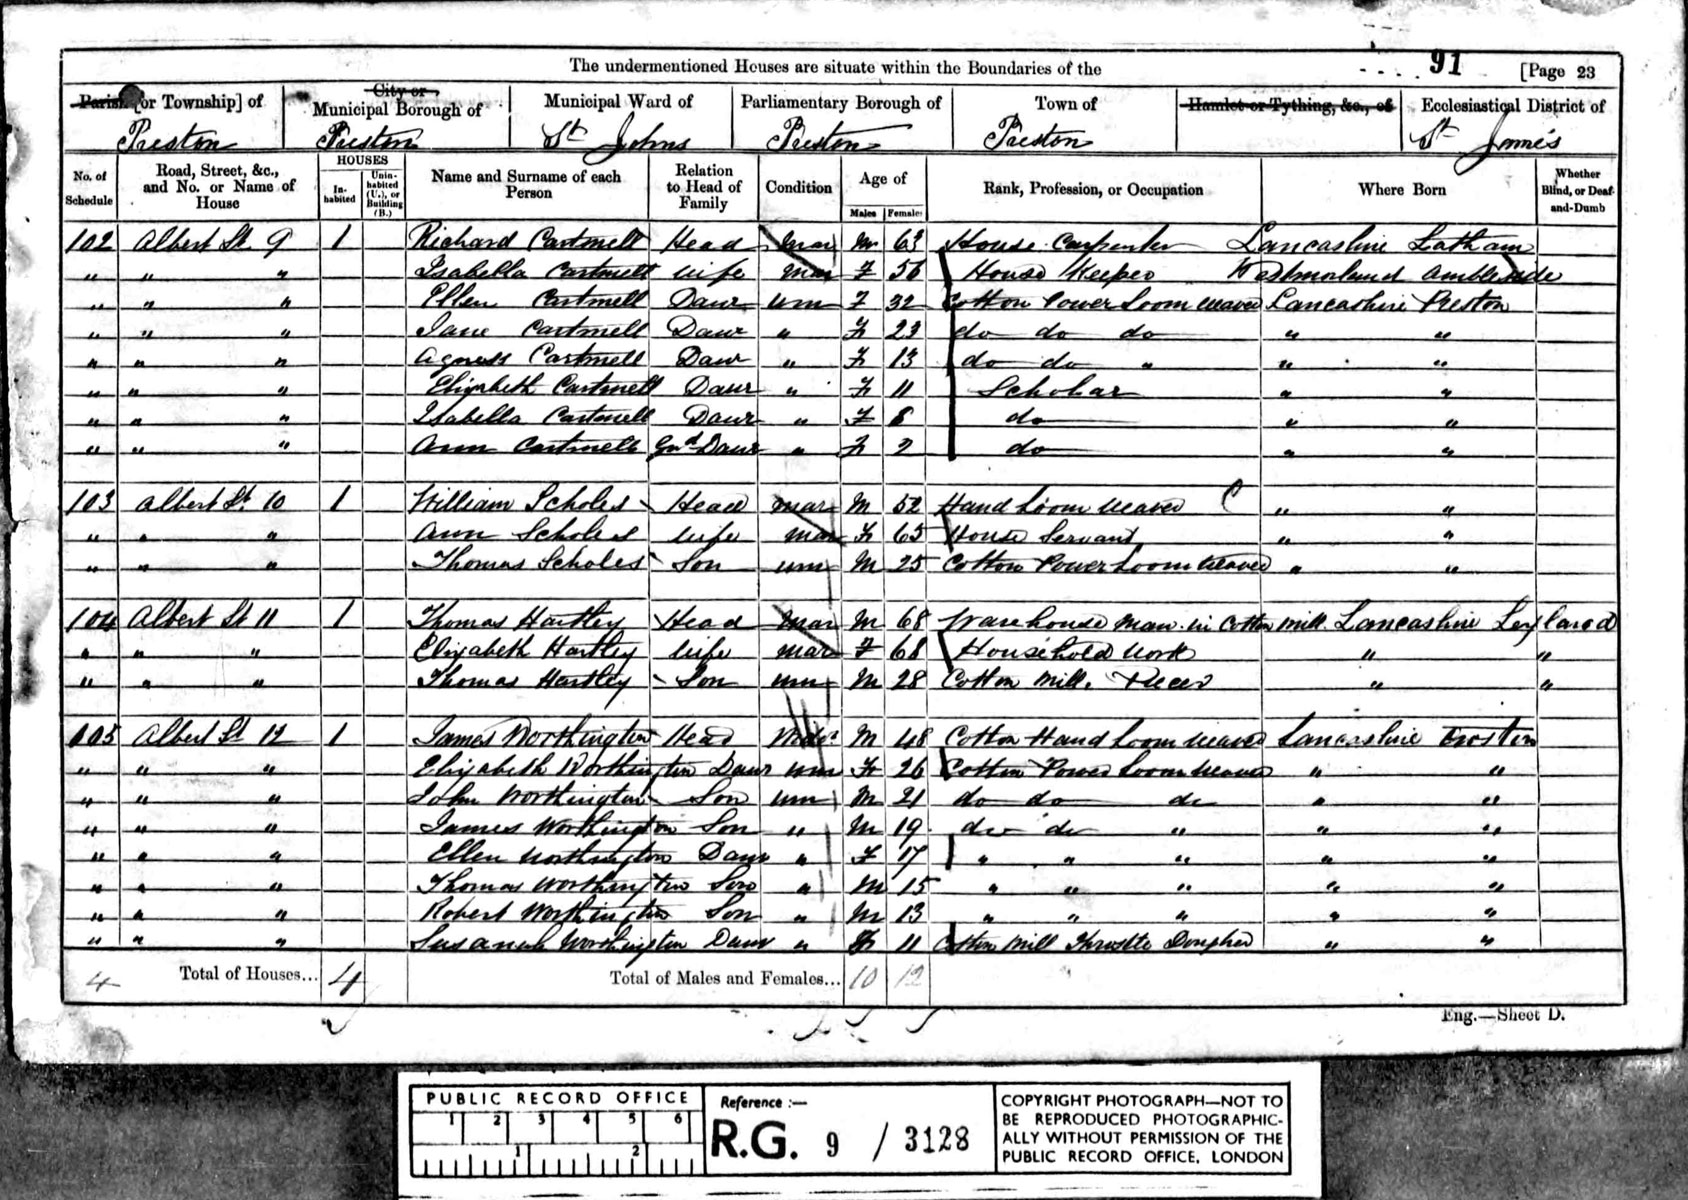 The undermentioned Houses are situate within the Boundaries of the
91 [Page 23
Parish [or Township] of
City or Municipal Borough of
Municipal Ward of
Parliamentary Borough of
Town of
Hamlet or Tything, &c., of
Ecclesiastical District of
Preston Preston St Johns Preston Preston St James's
No. of Schedule
Road, Street, &c., and No. or Name of House
HOUSES
In-habited
Unin-habited (U.), or Building (B.)
Name and Surname of each Person
Relation to Head of Family
Condition
Age of
Males Females
Rank, Profession, or Occupation
Where Born
Whether Blind, or Deaf-and-Dumb
102 Albert St 9 1 Richard Cartmell Head Mar M 63 House Carpenter Lancashire Latham
" " " Isabella Cartmell Wife Mar F 56 House Keeper Westmorland Ambleside
" " " Ellen Cartmell Daur Um F 32 Cotton Power Loom Weaver Lancashire Preston
" " " Jane Cartmell Daur " F 23 do do do " "
" " " Agness Cartmell Daur " F 13 do do " " "
" " " Elizabeth Cartmell Daur " F 11 Scholar " "
" " " Isabella Cartmell Daur " F 8 do " "
" " " Ann Cartmell Gnd Daur " F 2 do " "
103 Albert St 10 1 William Scholes Head Mar M 52 Hand Loom Weaver C " "
" " " Ann Scholes Wife Mar F 65 House Servant " "
" " " Thomas Scholes Son Um M 25 Cotton Power Loom Weaver " "
104 Albert St 11 1 Thomas Hartley Head Mar M 68 Warehouse Man in Cotton Mill Lancashire Leyland
" " " Elizabeth Hartley Wife Mar F 68 Household Work " "
" " " Thomas Hartley Son Um M 28 Cotton Mill " "
105 Albert St 12 1 James Worthington Head Widr M 48 Cotton Hand Loom Weaver Lancashire
" " " Elizabeth Worthington Daur Um F 26 Cotton Power Loom Weaver " "
" " " John Worthington Son Um M 21 do do do " "
" " " James Worthington Son " M 19 do do " " "
" " " Ellen Worthington Daur " F 17 " " " " "
" " " Thomas Worthington Son " M 15 " " " " "
" " " Robert Worthington Son " M 13 " " " " "
" " " Susanah Worthington Daur " F 11 Cotton Mill " "
4 Total of Houses... 4 Total of Males and Females... 10 12
Eng.—Sheet D.
PUBLIC RECORD OFFICE
1 2 3 4 5 6
1 2
Reference :—
R.G. 9 / 3128
COPYRIGHT PHOTOGRAPH—NOT TO
BE REPRODUCED PHOTOGRAPHIC-
ALLY WITHOUT PERMISSION OF THE
PUBLIC RECORD OFFICE, LONDON